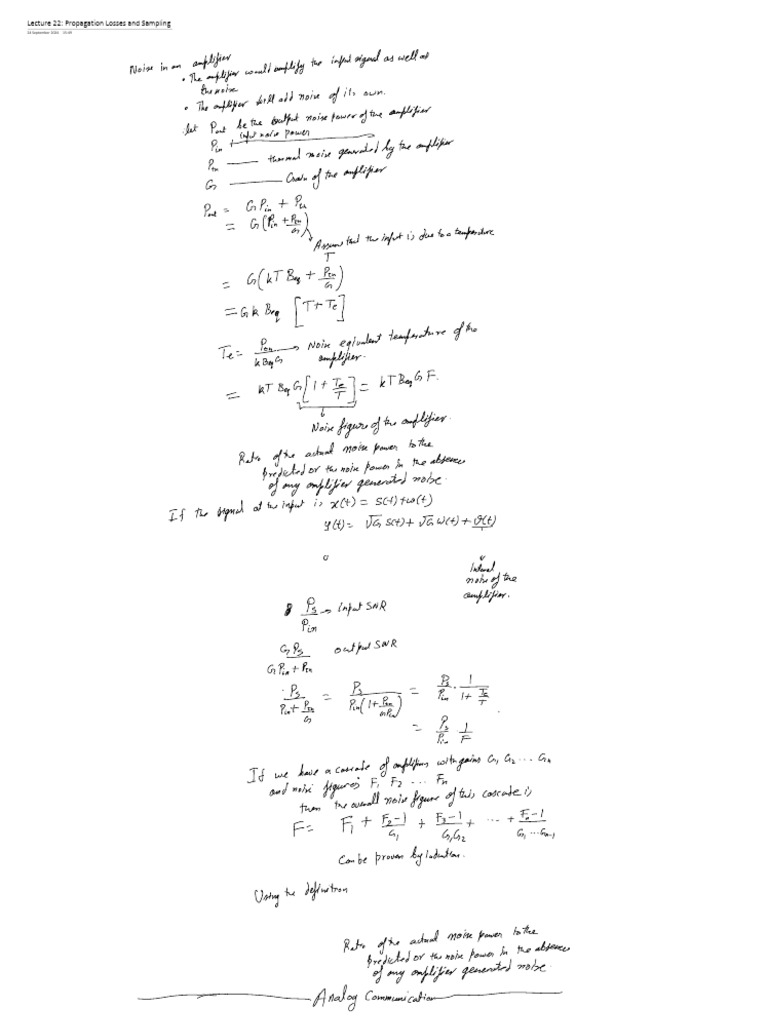 Lecture 22: Propagation Losses and Sampling
Noise in an amplifier
• The amplifier would amplify the input signal as well as
the noise
• The amplifier will add noise of its own.
let Pout be the output noise power of the amplifier
Pin — input noise power
Ptn — thermal noise generated by the amplifier
G — Gain of the amplifier
Pout = G Pin + Ptn
= G(Pin + Ptn/G)
Assume that the input is due to a temperature
T
= G(kT Beq + Ptn/G)
= G k Beq [T + Te]
Te = Ptn/(k Beq G) → Noise eqivalent temperature of the
amplifier.
= kT Beq G [1 + Te/T] = kT Beq G F.
Noise figure of the amplifier.
Ratio of the actual noise power to the
predicted or the noise power in the absence
of any amplifier generated noise.
If the signal at the input is x(t) = s(t) + w(t)
y(t) = √G s(t) + √G w(t) + v(t)
Internal
noise of the
amplifier.
Ps/Pin → input SNR
G Ps/(G Pin + Ptn) output SNR
Ps/(Pin + Ptn/G) = Ps/(Pin(1 + Ptn/(G Pin))) = Ps/Pin · 1/(1 + Te/T)
= Ps/Pin 1/F
If we have a cascade of amplifiers with gains G1, G2 ... Gn
and noise figures F1 F2 ... Fn
then the overall noise figure of this cascade is
F = F1 + (F2-1)/G1 + (F3-1)/(G1G2) + ... + (Fn-1)/(G1 ... Gn-1)
Can be proven by induction.
Using the definition
Ratio of the actual noise power to the
predicted or the noise power in the absence
of any amplifier generated noise.
Analog Communication